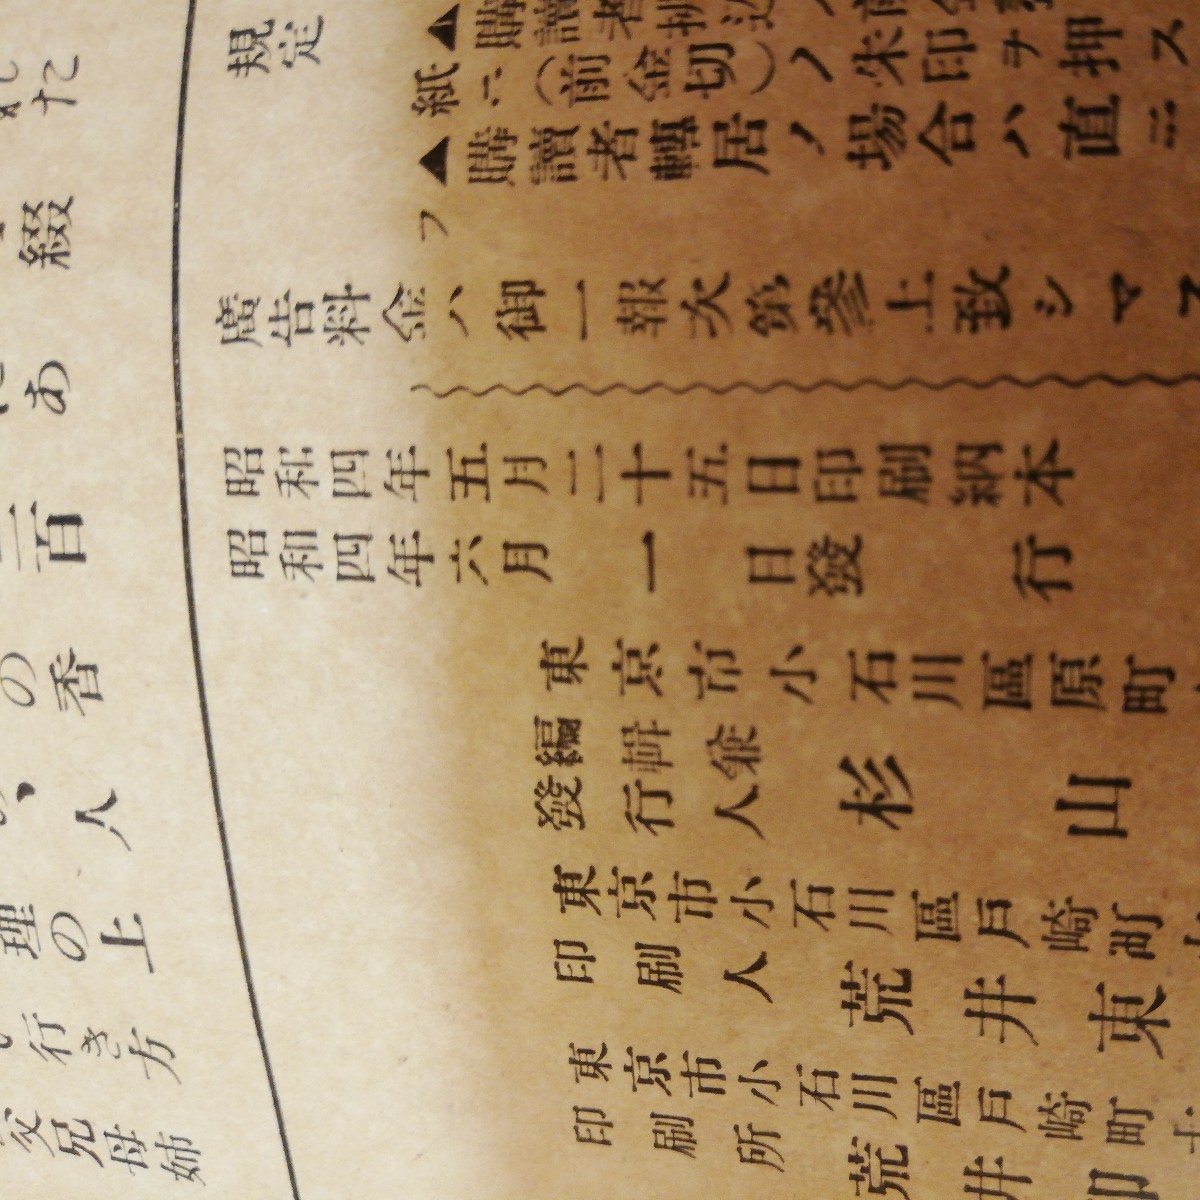 た
綴
あ
百
の香
人
理の上
行き方
父兄母姉
規定
▲購讀者拂込
紙ニ(前金切)ノ朱印ヲ押ス
▲購讀者轉居ノ場合ハ直ニ
フ
廣告料金ハ御一報次第參上致シマス
昭和四年五月二十五日印刷納本
昭和四年六月一日發行
東京市小石川區原町
編輯兼
發行人 杉山
東京市小石川區戸崎町
印刷人 荒井東
東京市小石川區戸崎町
印刷所 荒井印